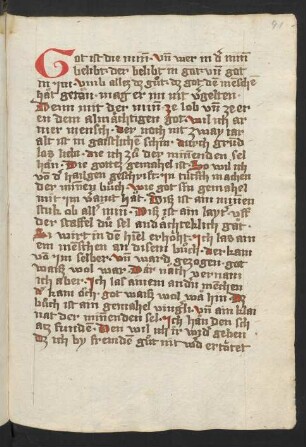 Got ist die min̄ · vn̄ wer in d᷑ min̄
belibt · der belibt in got vn̄ got
in im · vmb alles dz gůt dz got dem mēsche
hat getan · mag er im nit v᷑gelten ·
Denn mit der min̄ ze lob vn̄ ze er
en dem almächtigen got · wil ich ar
mer mensch · der noch nit zway iar
alt ist in gaistlichem schin · durch
las · die ich zů der minenden sel
hān · Die gottes gemahel ist · So wil ich
vō d᷑ hailgen geschrift · in tütsch machen
der minen bůch · wie got sin gemahel
mit im v᷑aint hat · Diß ist ain minen
stuk ob all min̄ · Diß ist ain layt · vff
der staffel dü sel andächteklich gāt ·
Si wirt in den himel erhöht · Ich las am
em mēschen an disem bůch · der kam
von im selber · vn̄ ward gezogen · got
waiß wol war · Dar nach vernam
ich aber · Ich las ainem andn̄ mēschen
d᷑ kam och · got waiß wol wa hin · Dz
bůch ist ain gemahel vingerli · vn̄ ain klai
nat der minenden sel · Ich hān den sch
atz funden · Den wil ich ir wid᷑ geben
dz ich by fremdem gůt nit wd᷑ ertötet